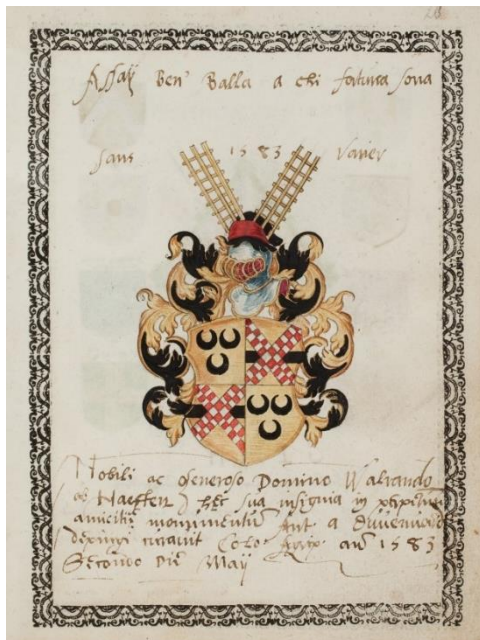 Assay Ben Balla a chi fortuna sona
sans 1583 Varier
Nobili ac Generoso Domino Walrando
ab Haeften hęc sua insignia in perpetuū
amicitię monumentū Ant. a
depingi curavit Colo Agrip. an 1583
Secondo Die Maÿ